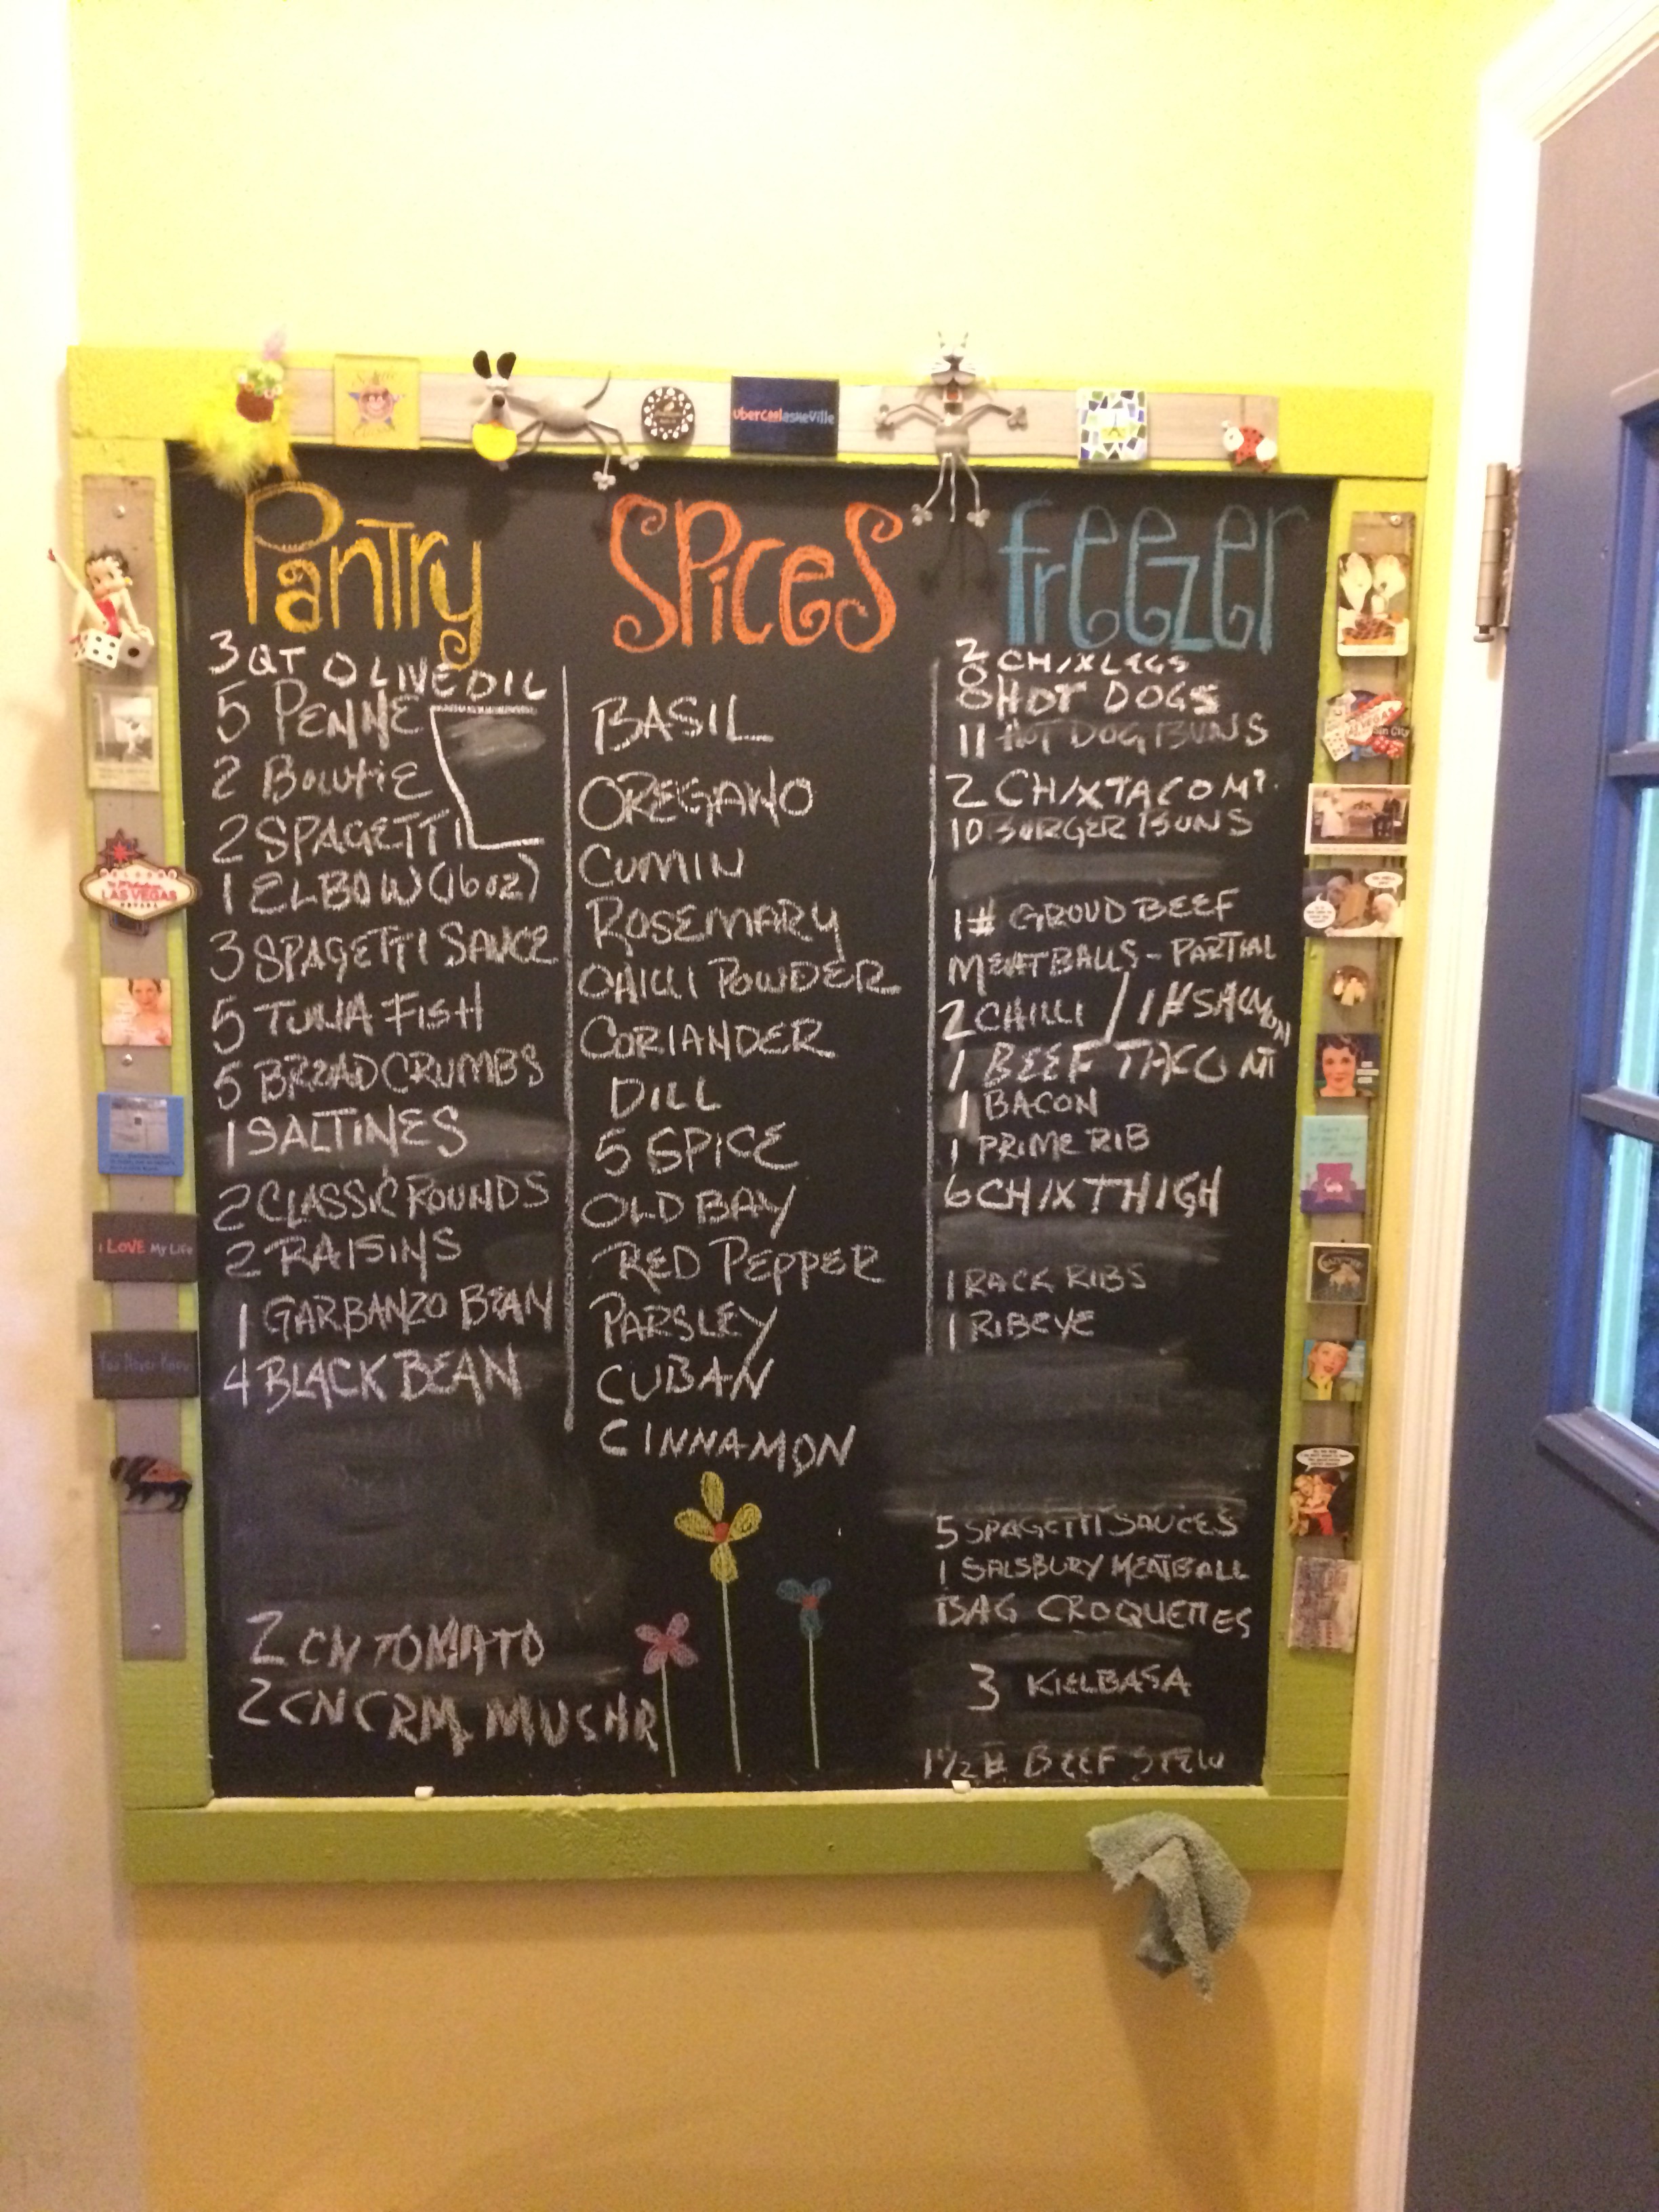 ubercoolasheville
Pantry
3 QT OLIVE OIL
5 PENNE
2 BOWTIE
2 SPAGETTI
1 ELBOW (16 oz)
3 SPAGETTI SAUCE
5 TUNA FISH
5 BREAD CRUMBS
1 SALTINES
2 CLASSIC ROUNDS
2 RAISINS
1 GARBANZO BEAN
4 BLACK BEAN
2 CN TOMATO
2 CN CRM MUSHR
SPiceS
BASIL
OREGANO
CUMIN
ROSEMARY
CHILLI POWDER
CORIANDER
DILL
5 SPICE
OLD BAY
RED PEPPER
PARSLEY
CUBAN
CINNAMON
freezer
2 CHIX LEGS
8 HOT DOGS
11 HOT DOG BUNS
2 CHIX TACO MT.
10 BURGER BUNS
1# GROUD BEEF
MEATBALLS - PARTIAL
2 CHILLI / 1# SALMON
1 BEEF TACO MT
1 BACON
1 PRIME RIB
6 CHIX THIGH
1 RACK RIBS
1 RIBEYE
5 SPAGETTI SAUCES
1 SALSBURY MEATBALL
BAG CROQUETTES
3 KIELBASA
1 1/2 # BEEF STEW
LAS VEGAS
NEVADA
I LOVE My Life
You Never Know
Sin City